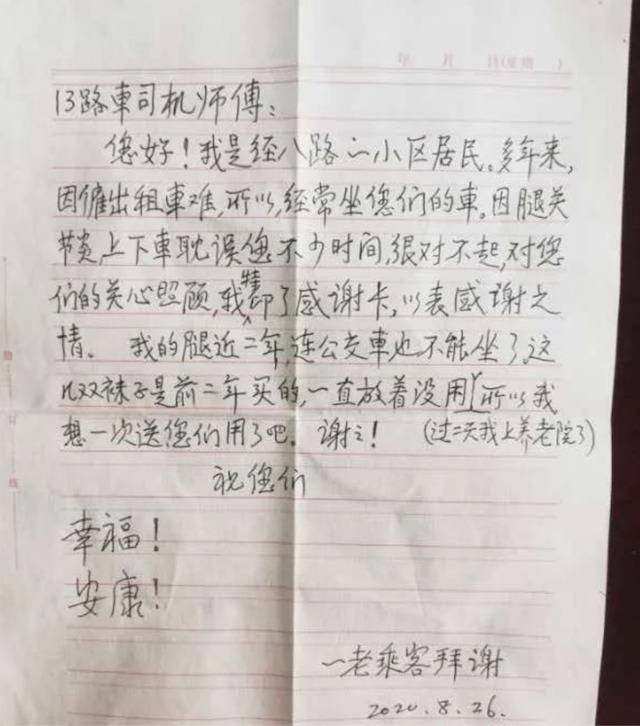 年 月 日(星期 )
13路車司机师傅:
您好!我是经八路一小区居民。多年来,
因僱出租車难,所以,经常坐您们的車。因腿关
节炎,上下車耽误您不少时间,很对不起,对您
们的关心照顾,我特印了感谢卡,以表感谢之
情。 我的腿近二年,连公交車也不能坐了,这
几双袜子是前二年买的,一直放着没用,所以我
想一次送您们用了吧。谢之! (过二天我上养老院了)
祝您们
幸福!
安康!
一老乘客拜谢
2020.8.26.